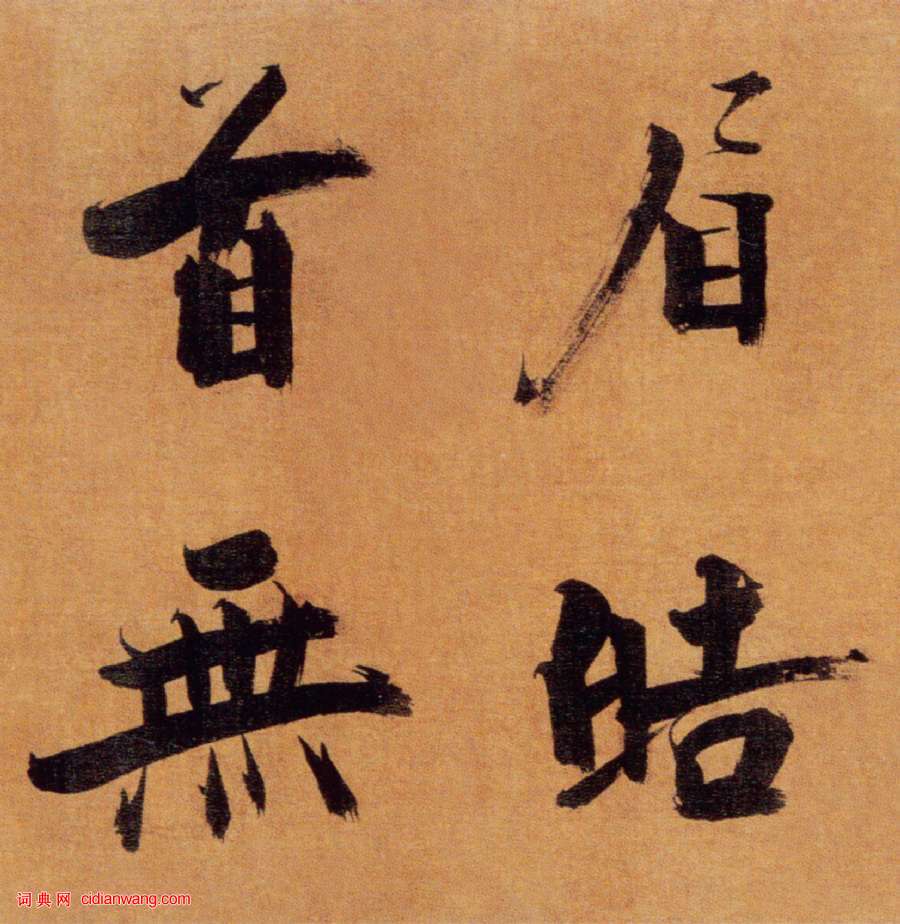 眉皓
首無
词典网 cidianwang.com